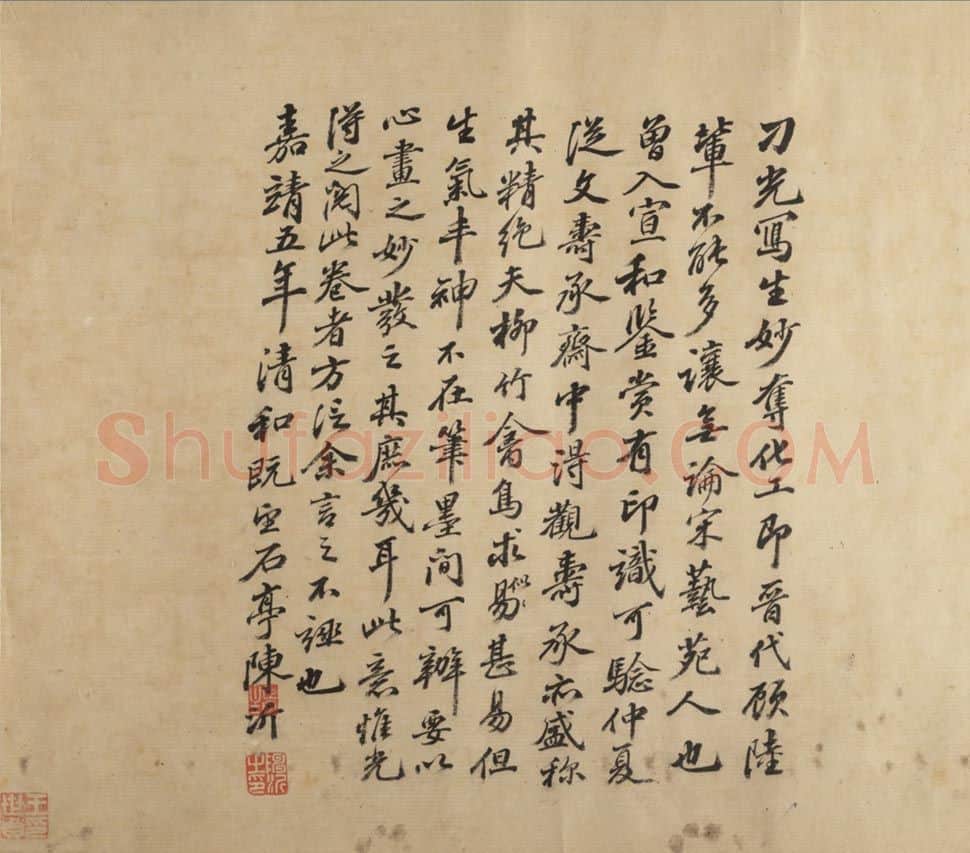 刁光寫生妙奪化工即晉代顧陸
輩不能多讓無論宋藝苑人也
曾入宣和鑒賞有印識可驗仲夏
從文壽承齋中得觀壽承亦盛称
其精絶夫柳竹禽鳥求似易甚易但
生氣丰神不在筆墨間可辦要以
心畫之妙發之其庶幾耳此意惟光
得之閱此卷者方信余言之不誣也
嘉靖五年清和既望石亭陳沂
Shufaziliao.COM